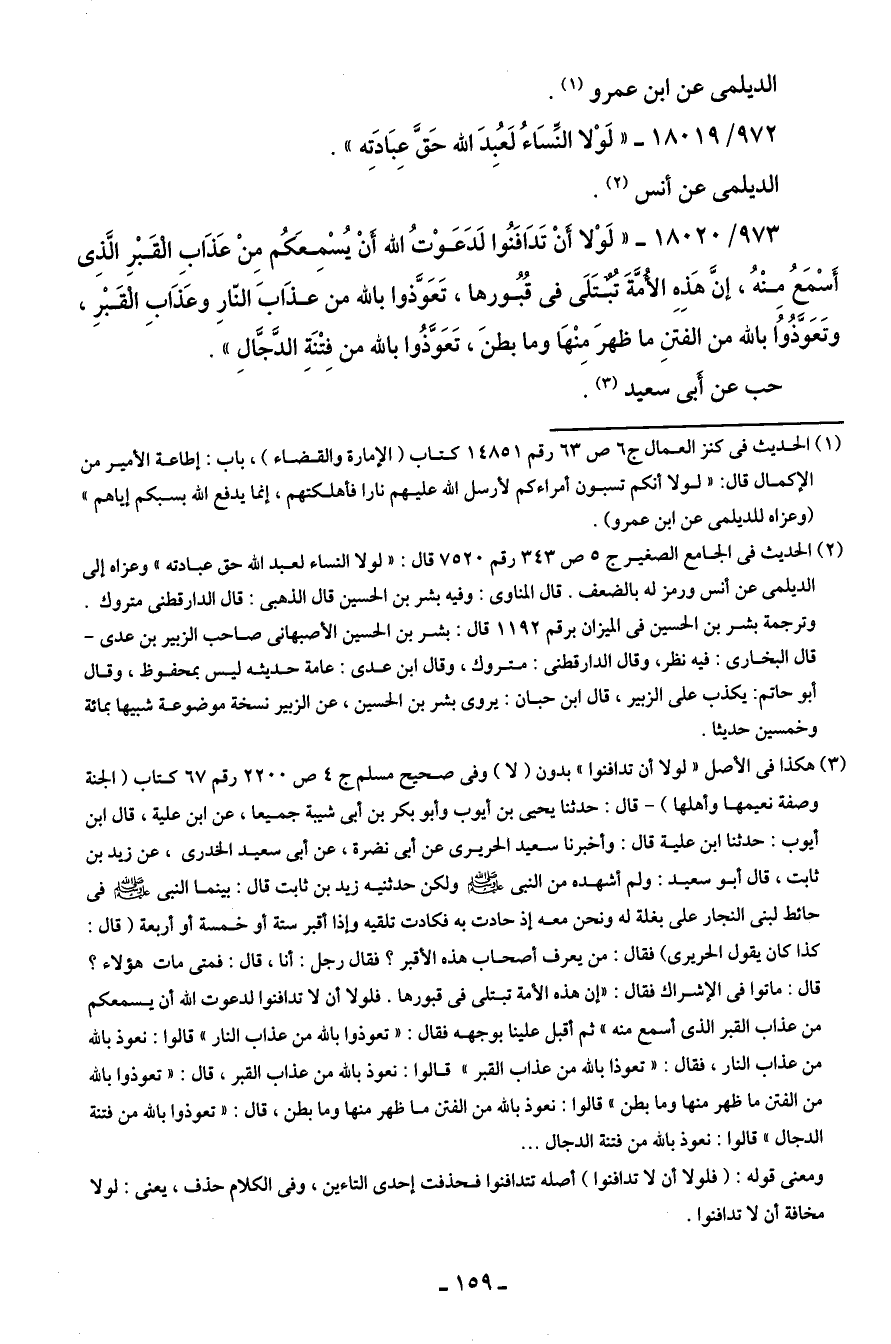 الديلمى عن ابن عمرو (١) .
٩٧٢/ ١٨٠١٩ ـ « لَوْلا النِّسَاءُ لَعُبِدَ الله حَقَّ عِبَادَتِه » .
الديلمى عن أنس (٢) .
٩٧٣/ ١٨٠٢٠ ـ « لَوْلا أَنْ تَدَافَنُوا لَدَعَوْتُ الله أَنْ يُسْمِعَكُم مِنْ عَذَابِ الْقَبْرِ الَّذِى
أَسْمَعُ مِنْهُ ، إنَّ هَذِهِ الأُمَّةَ تُبْتَلَى فى قُبُورها ، تَعَوَّذوا بالله من عذَابَ النَّارِ وعَذَابِ الْقَبْرِ ،
وتَعَوَّذُوا بالله من الفتنِ ما ظهرَ مِنْهَا وما بطنَ ، تَعَوَّذُوا بالله من فِتْنَةِ الدَّجَّالِ » .
حب عن أبى سعيد (٣) .
(١) الحديث فى كنز العمال ج٦ ص ٦٣ رقم ١٤٨٥١ كتاب ( الإمارة والقضاء ) ، باب : إطاعة الأمير من
الإكمال قال: « لولا أنكم تسبون أمراءكم لأرسل الله عليهم نارا فأهلكتهم ، إنما يدفع الله بسبكم إياهم »
(وعزاه للديلمى عن ابن عمرو) .
(٢) الحديث فى الجامع الصغير ج ٥ ص ٣٤٣ رقم ٧٥٢٠ قال : « لولا النساء لعبد الله حق عبادته » وعزاه إلى
الديلمى عن أنس ورمز له بالضعف . قال المناوى : وفيه بشر بن الحسين قال الذهبى : قال الدارقطنى متروك .
وترجمة بشر بن الحسين فى الميزان برقم ١١٩٢ قال : بشر بن الحسين الأصبهانى صاحب الزبير بن عدى –
قال البخارى : فيه نظر، وقال الدارقطنى : متروك ، وقال ابن عدى : عامة حديثه ليس بمحفوظ ، وقال
أبو حاتم: يكذب على الزبير ، قال ابن حبان : يروى بشر بن الحسين ، عن الزبير نسخة موضوعة شبيها بمائة
وخمسين حديثا .
(٣) هكذا فى الأصل « لولا أن تدافنوا » بدون ( لا ) وفى صحيح مسلم ج ٤ ص ٢٢٠٠ رقم ٦٧ كتاب ( الجنة
وصفة نعيمها وأهلها ) – قال : حدثنا يحيى بن أيوب وأبو بكر بن أبى شيبة جميعا ، عن ابن علية ، قال ابن
أيوب : حدثنا ابن علية قال : وأخبرنا سعيد الحريرى عن أبى نضرة ، عن أبى سعيد الخدرى ، عن زيد بن
ثابت ، قال أبو سعيد : ولم أشهده من النبى ﷺ ولكن حدثنيه زيد بن ثابت قال : بينما النبى ﷺ فى
حائط لبنى النجار على بغلة له ونحن معه إذ حادت به فكادت تلقيه وإذا أقبر ستة أو خمسة أو أربعة ( قال :
كذا كان يقول الحريرى) فقال : من يعرف أصحاب هذه الأقبر ؟ فقال رجل : أنا ، قال : فمتى مات هؤلاء ؟
قال : ماتوا فى الإشراك فقال : «إن هذه الأمة تبتلى فى قبورها . فلولا أن لا تدافنوا لدعوت الله أن يسمعكم
من عذاب القبر الذى أسمع منه » ثم أقبل علينا بوجهه فقال : « تعوذوا بالله من عذاب النار » قالوا : نعوذ بالله
من عذاب النار ، فقال : « تعوذا بالله من عذاب القبر » قالوا : نعوذ بالله من عذاب القبر ، قال : « تعوذوا بالله
من الفتن ما ظهر منها وما بطن » قالوا : نعوذ بالله من الفتن ما ظهر منها وما بطن ، قال : « تعوذوا بالله من فتنة
الدجال » قالوا : نعوذ بالله من فتنة الدجال ...
ومعنى قوله : ( فلولا أن لا تدافنوا ) أصله تتدافنوا فحذفت إحدى التاءين ، وفى الكلام حذف ، يعنى : لولا
مخافة أن لا تدافنوا .
ـ ١٥٩ ـ